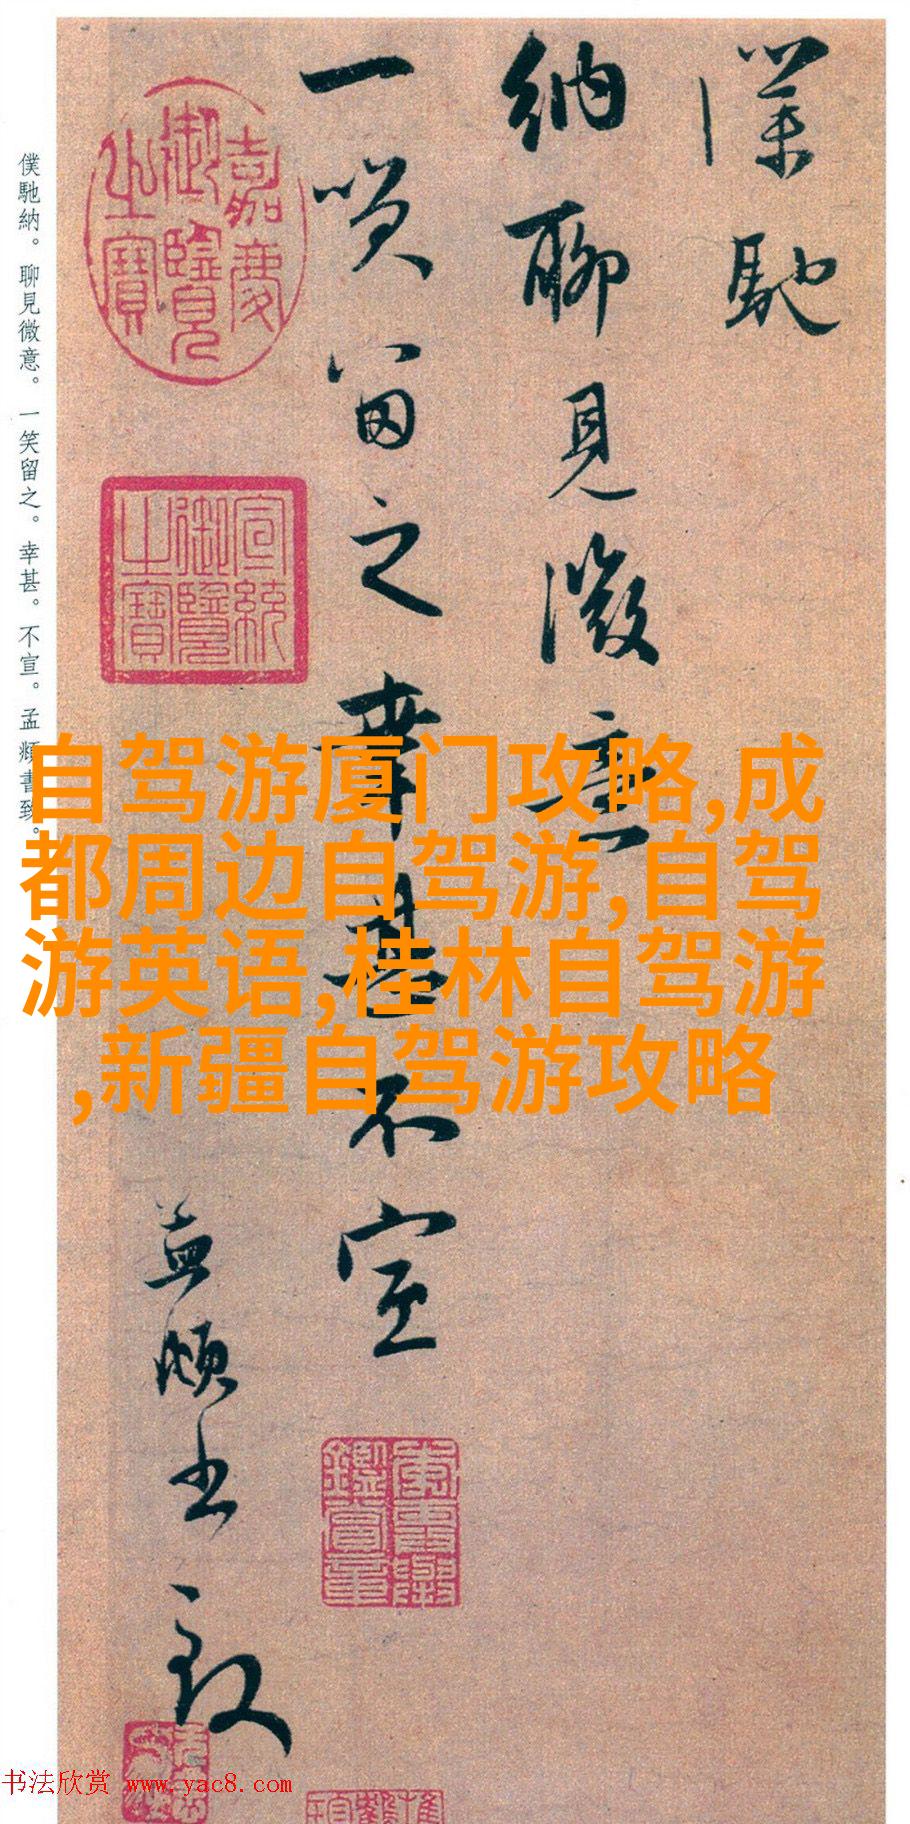 僕馳
納聊見微意
一笑留之幸甚不宣
孟頫書致
嘉慶
御覽
之寶
宣統
御覽
之寶
僕馳納。聊見微意。一笑留之。幸甚。不宣。孟頫書致。
自驾游厦门攻略,成
都周边自驾游,自驾
游英语,桂林自驾游
,新疆自驾游攻略
书法欣赏 www.yac8.com